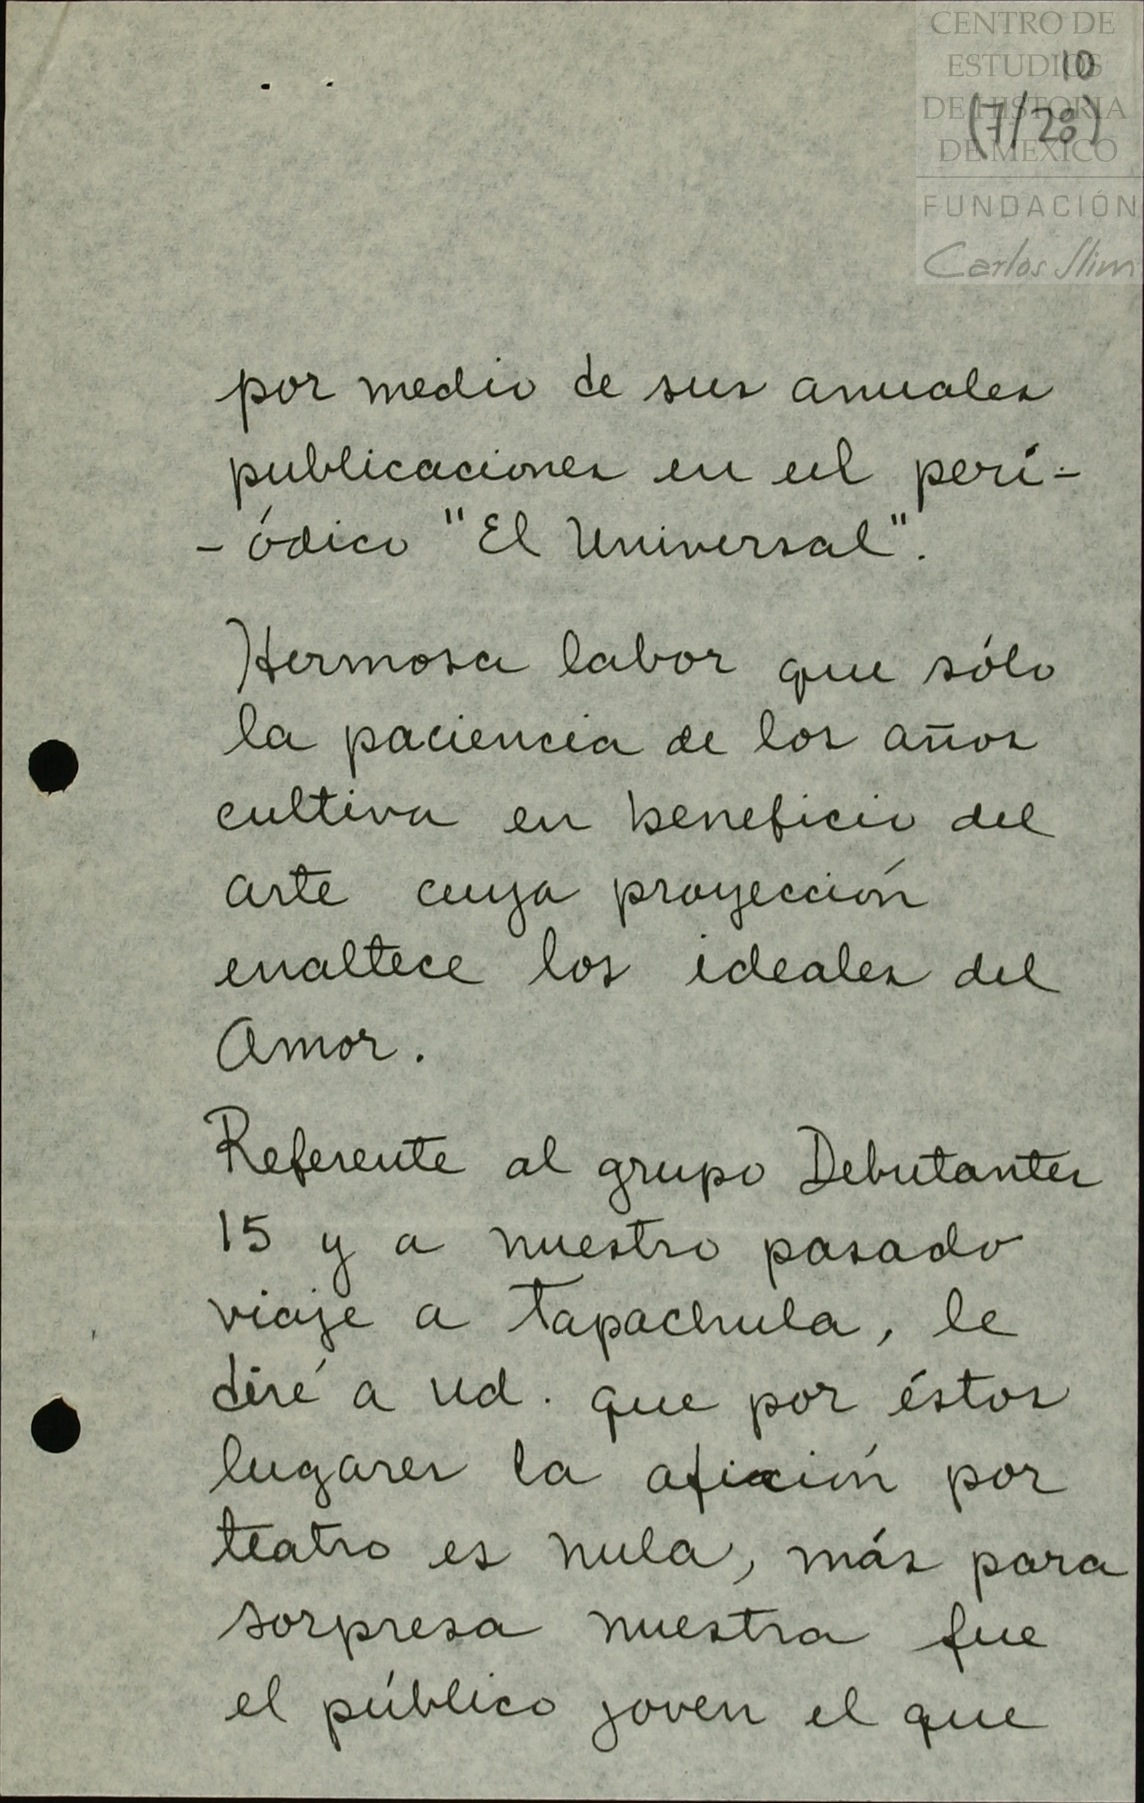 CENTRO DE
ESTUDIOS
DE HISTORIA
DE MEXICO
FUNDACIÓN
Carlos Slim
10
(7/28)
por medio de sus anuales
publicaciones en el perí-
- ódico "El Universal".
Hermosa labor que sólo
la paciencia de los años
cultiva en beneficio del
arte cuya proyección
enaltece los ideales del
Amor.
Referente al grupo Debutantes
15 y a nuestro pasado
viaje a Tapachula, le
diré a Ud. que por éstos
lugares la afición por
teatro es nula, más para
sorpresa nuestra fue
el público joven el que